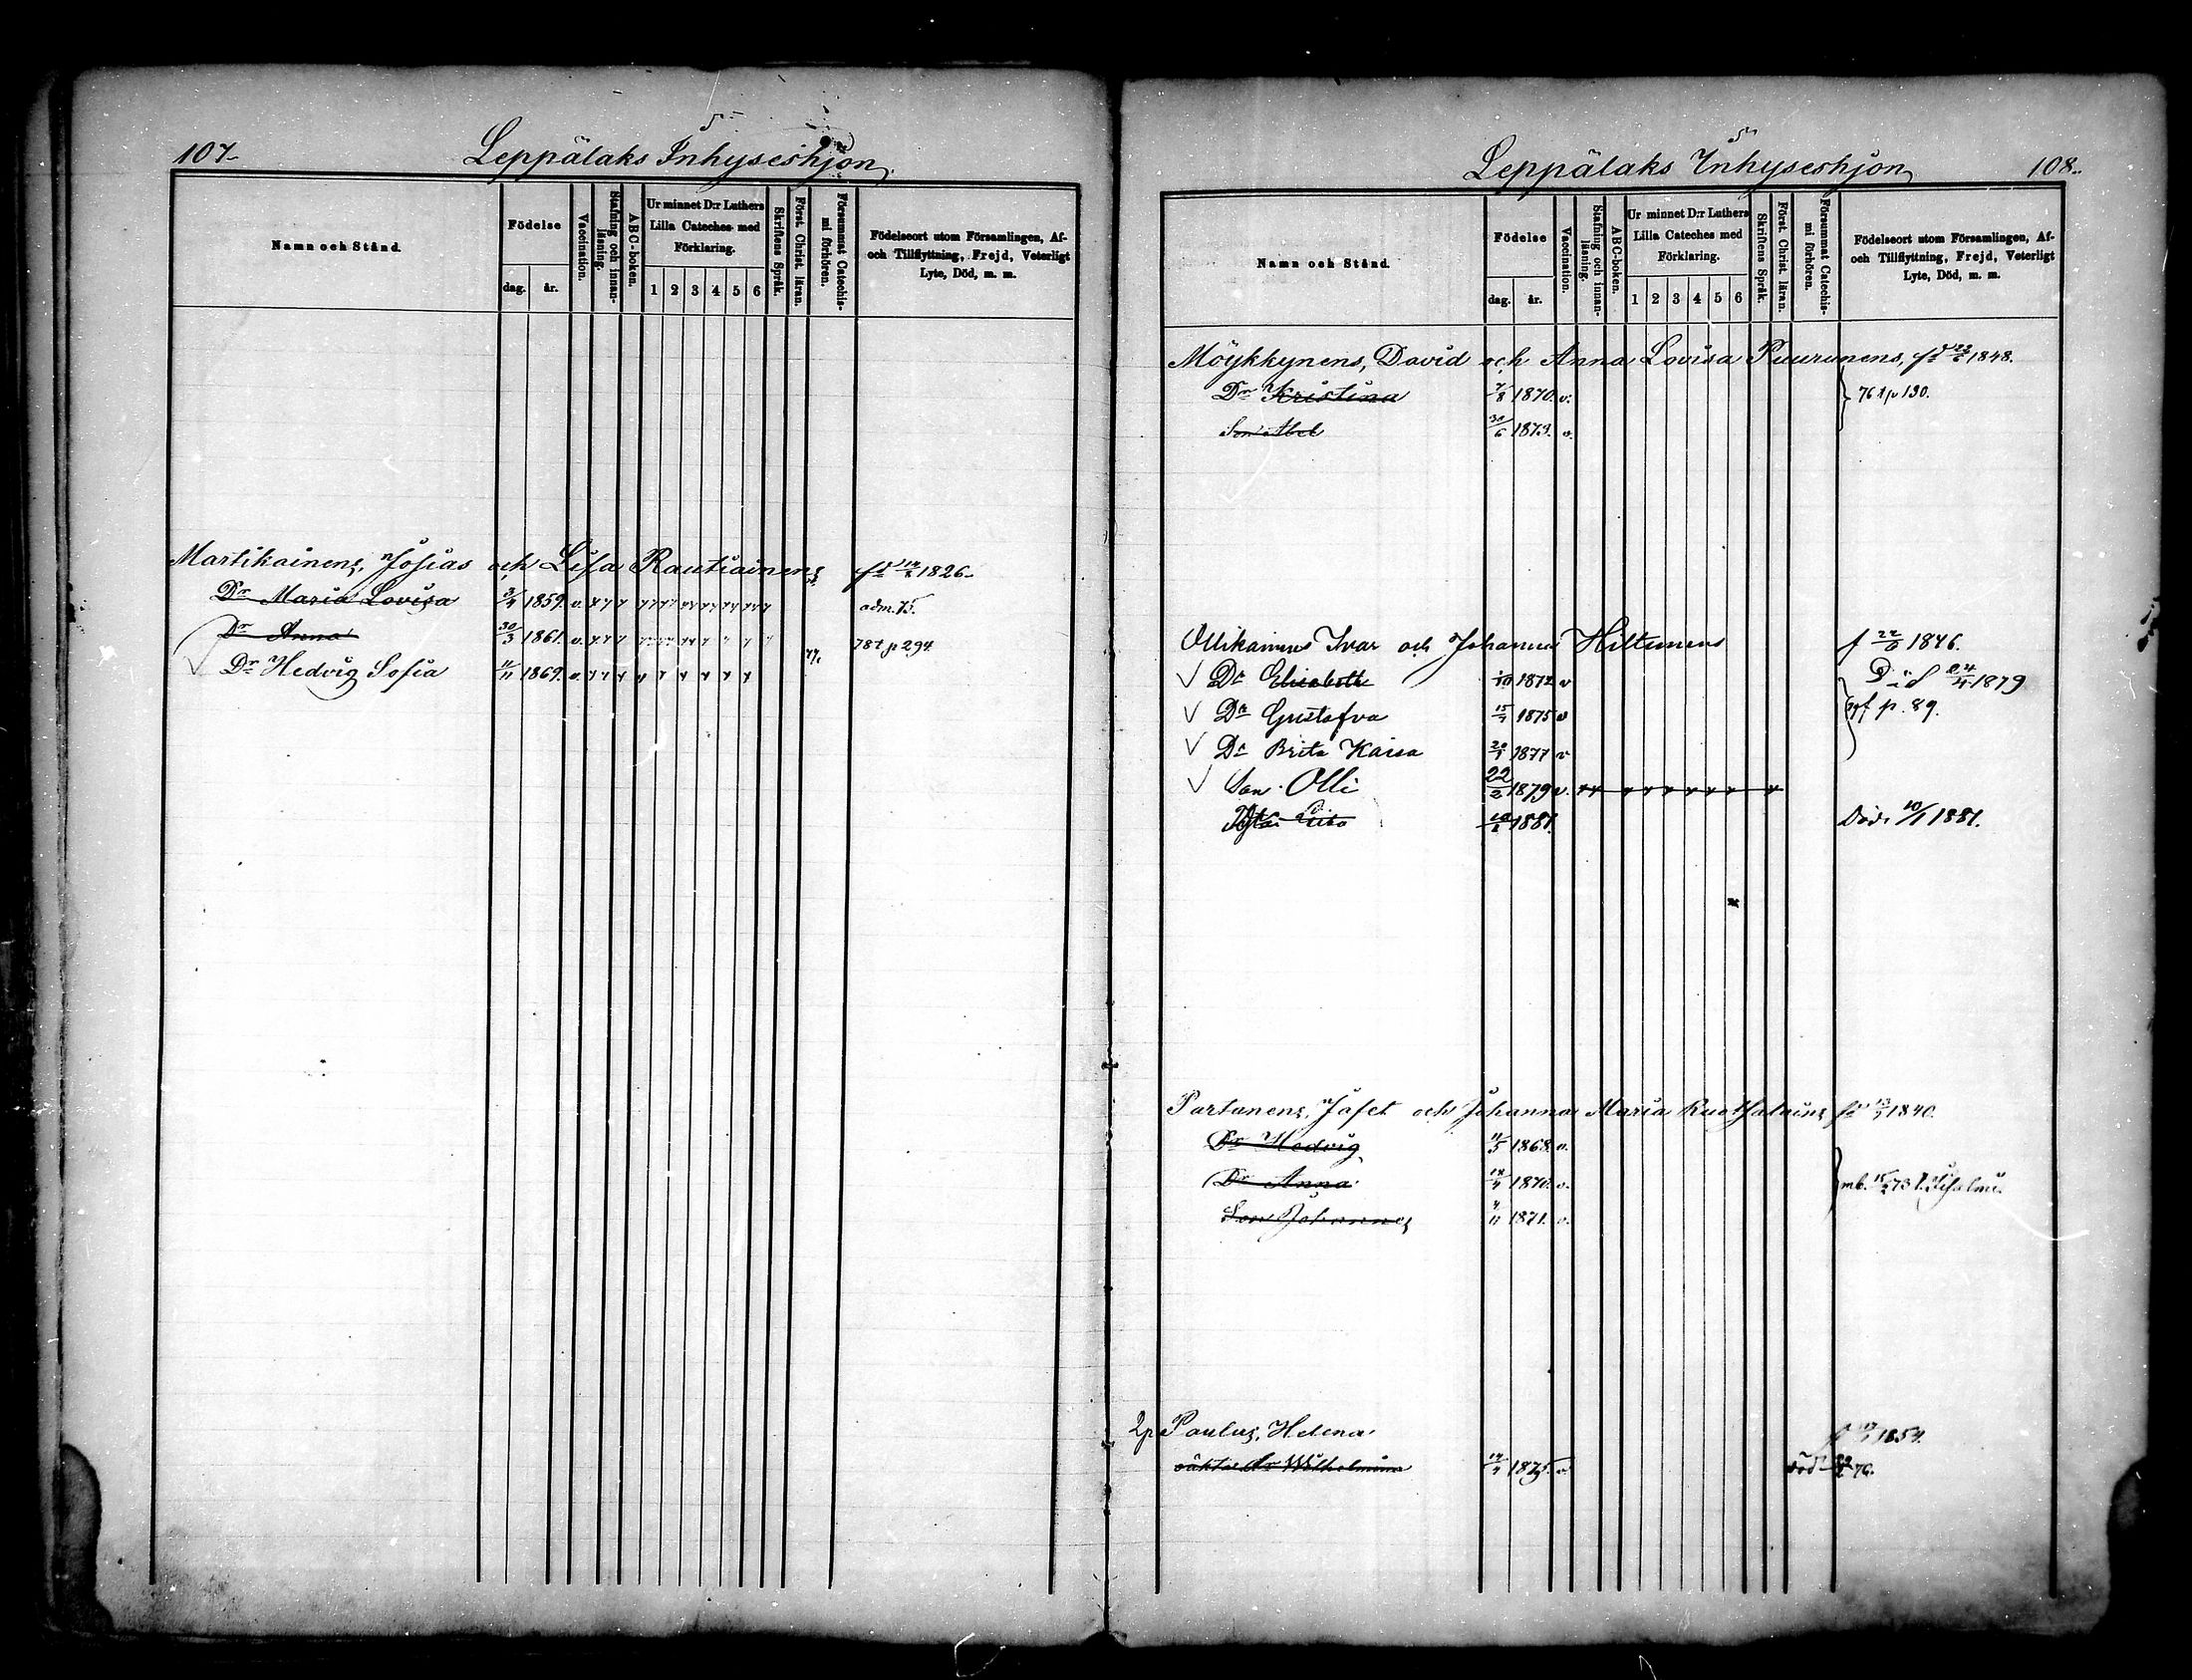 107.
5
Leppälaks Inhyseshjon
Namn och Stånd.
Födelse
dag. år.
Vaccination.
Stafning och innanläsning.
ABC-boken.
Ur minnet D:r Luthers Lilla Cateches med Förklaring.
1 2 3 4 5 6
Skriftens Språk.
Först. Christ. läran.
Försummat Catechismi förhören.
Födelseort utom Församlingen, Af- och Tillflyttning, Frejd, Veterligt Lyte, Död, m. m.
Martikainens, Josias och Lisa Rautiainens fd 1826.
Dr Maria Lovisa 3/4 1859. v. adm. 75.
Dr Anna 30/3 1861. v. 78 t p 294
Dr Hedvig Sofia 1869. v. 77.
5
Leppälaks Inhyseshjon
108.
Namn och Stånd.
Födelse
dag. år.
Vaccination.
Stafning och innanläsning.
ABC-boken.
Ur minnet D:r Luthers Lilla Cateches med Förklaring.
1 2 3 4 5 6
Skriftens Språk.
Först. Christ. läran.
Försummat Catechismi förhören.
Födelseort utom Församlingen, Af- och Tillflyttning, Frejd, Veterligt Lyte, Död, m. m.
Möykkynens, David och Anna Lovisa Puurunens, fd 1848.
Dr Kristina 7/8 1870. v. 76 t p 130.
Son Abel 30/6 1873. v.
Ollikainens Ivar och Johanna Hiltunens f 1846.
Dr Elisabeth 1872 v Död 24/4 1879
Dr Gustafva 1875 v p. 89.
Dr Brita Kaisa 1877 v
Son Olli 22/2 1879 v.
1881. Död. 1881.
Partanens, Jafet och Johanna Maria Ruotsalains fd 1840.
Dr Hedvig 11/5 1868. v.
Dr Anna 1870. v. mb. 73 t. Idisalmi.
Son Johannes 11 1871. v.
2p Paulus, Helena f 1854.
oäkta dr Wilhelmina 1875. v. död 76.